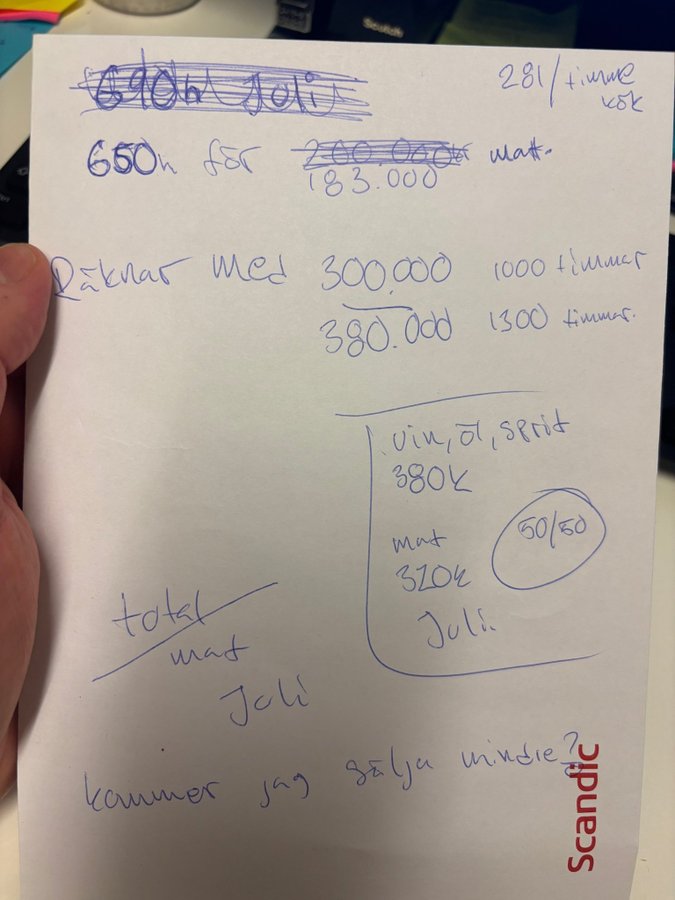 690h Juli
281/timme
kök
650h för 260.000kr mat.
183.000
Räknar med 300.000 1000 timmar
380.000 1300 timmar.
vin, öl, sprit
380k
mat 50/50
320k
Juli.
total
mat
Juli
kommer jag sälja mindre?
Scandic